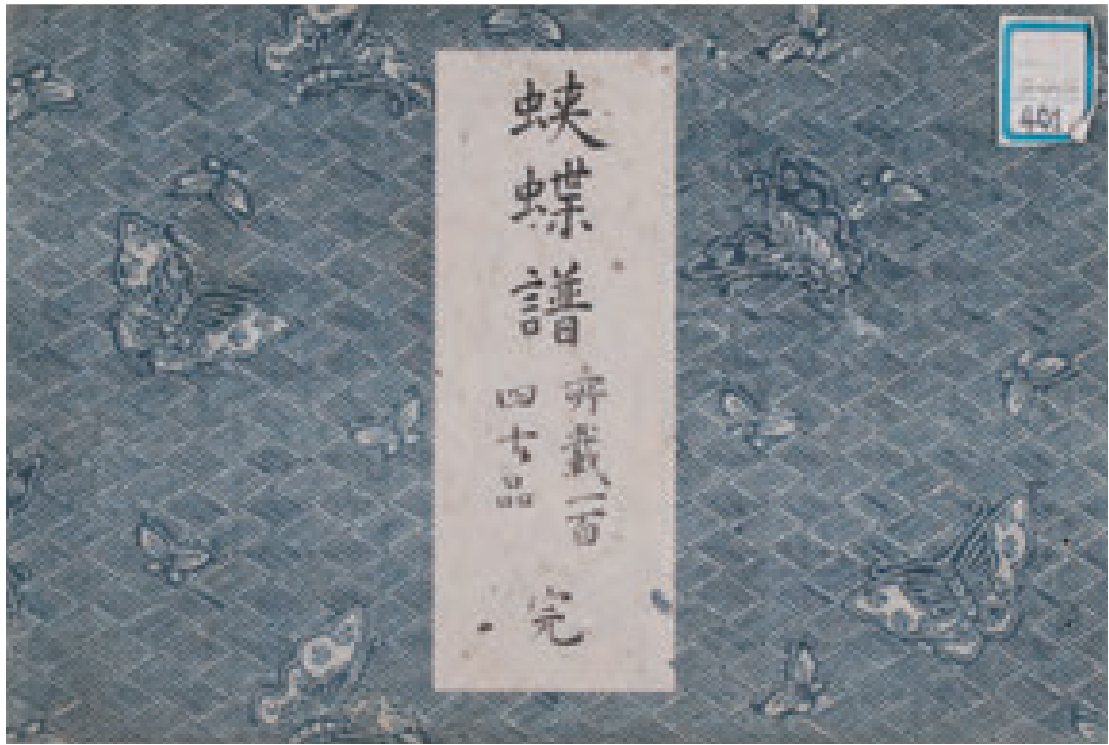 蛺蝶譜
所載一百
四十品
完
401